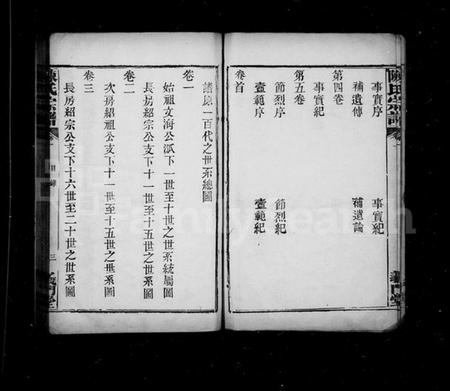 事實序 事實紀
補遺傳 補遺論
第四卷
事實紀
第五卷
節烈序 節烈紀
壼範序 壼範紀
卷首
譜原一百代之世系總圖
卷一
始祖文海公派下一世至十世之世系統屬圖
長房紹宗公支下十一世至十五世之世系圖
卷二
次房紹祖公支下十一世至十五世之世系圖
卷三
長房紹宗公支下十六世至二十世之世系圖
陳氏宗譜
卷一
目錄
三
義門堂
陳氏宗譜
義門堂
FamilySearch